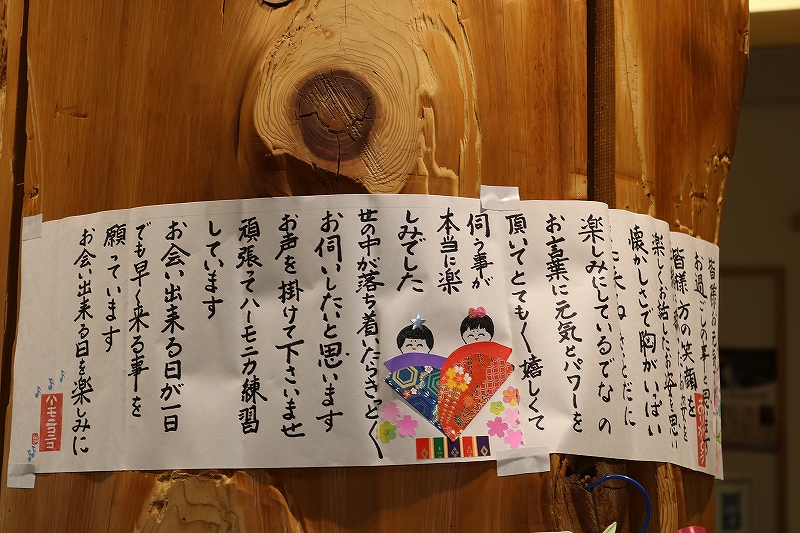 皆様
お過ごしの事と思います
皆様方の笑顔を
楽しくお話したお姿を思い
懐かしさで胸がいっぱい
楽しみにしているでなの
お言葉に元気とパワーを
頂いてとてもく嬉しくて
伺う事が
本当に楽
しみでした
世の中が落ち着いたらさっとく
お伺いしたいと思います
お声を掛けて下さいませ
頑張ってハーモニカ練習
しています
お会い出来る日が一日
でも早く来る事を
願っています
お会い出来る日を楽しみに
ハーモニカニコ